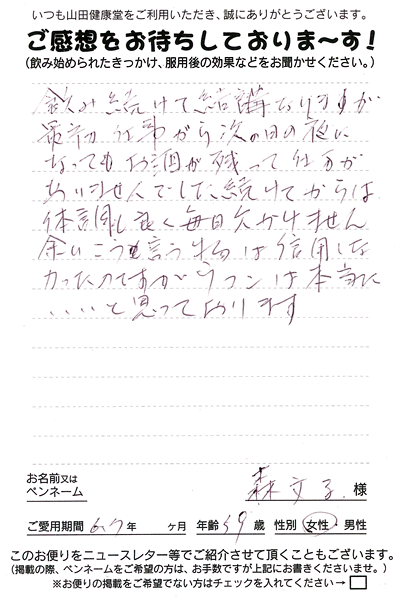 いつも山田健康堂をご利用いただき、誠にありがとうございます。
ご感想をお待ちしておりま〜す！
（飲み始められたきっかけ、服用後の効果などをお聞かせください。）
飲み続けて結構なりますが
最初仕事から次の日の夜に
なってもお酒が残って仕方が
ありませんでした、続けてからは
体調し良く毎日欠かけません
余りこうも言う物は信用しな
かったのですがウコンは本当に
いいと思っております
お名前又は
ペンネーム
森文子 様
ご愛用期間 6〜7 年 ヶ月 年齢 59 歳 性別 女性・男性
このお便りをニュースレター等でご紹介させて頂くこともございます。
（掲載の際、ペンネームをご希望の方は、お手数ですが上記にお書きくださいませ。）
※お便りの掲載をご希望でない方はチェックを入れてください→